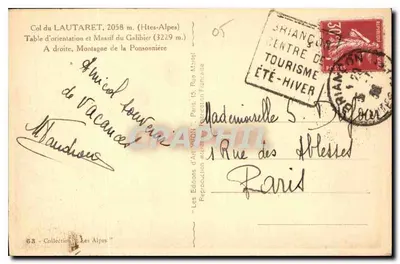 Col du LAUTARET, 2058 m. (Htes-Alpes)
Table d'orientation et Massif du Galibier (3229 m.)
A droite, Montagne de la Ponsonnière
05
BRIANÇON
CENTRE DE
TOURISME
ÉTÉ-HIVER
30c
BRIANÇON
Amical souvenir
de Vacances
Mademoiselle
1 Rue des Ablesses
Paris
Les Editions d'Art
Paris
Reproduction
63 - Collection "Les Alpes"
CPARAMA